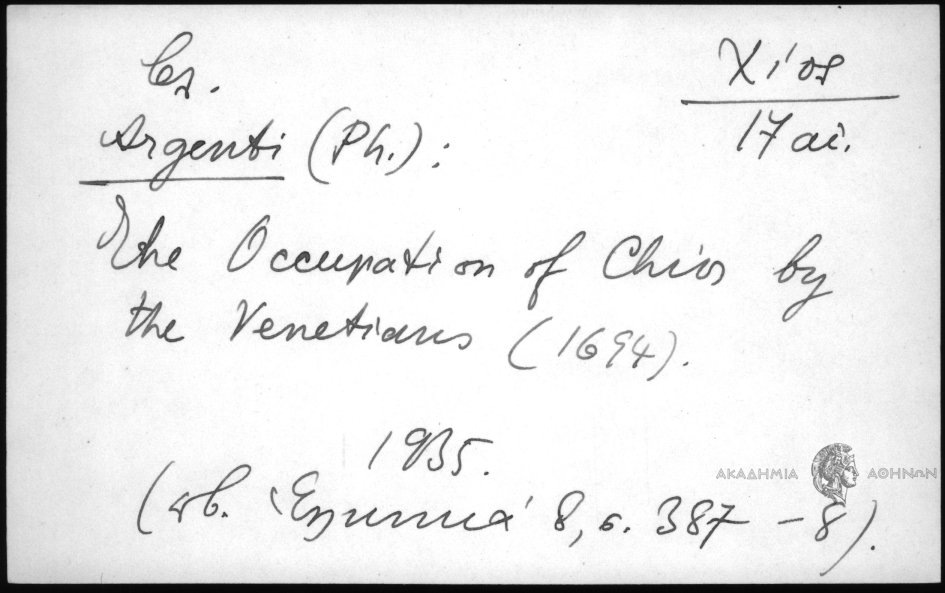 Χίος
17 αἰ.
Argenti (Ph.):
The Occupation of Chios by
the Venetians (1694).
1935.
(πβ. Ἑλληνικά 8, σ. 387-8).
ΑΚΑΔΗΜΙΑ ΑΘΗΝΩΝ